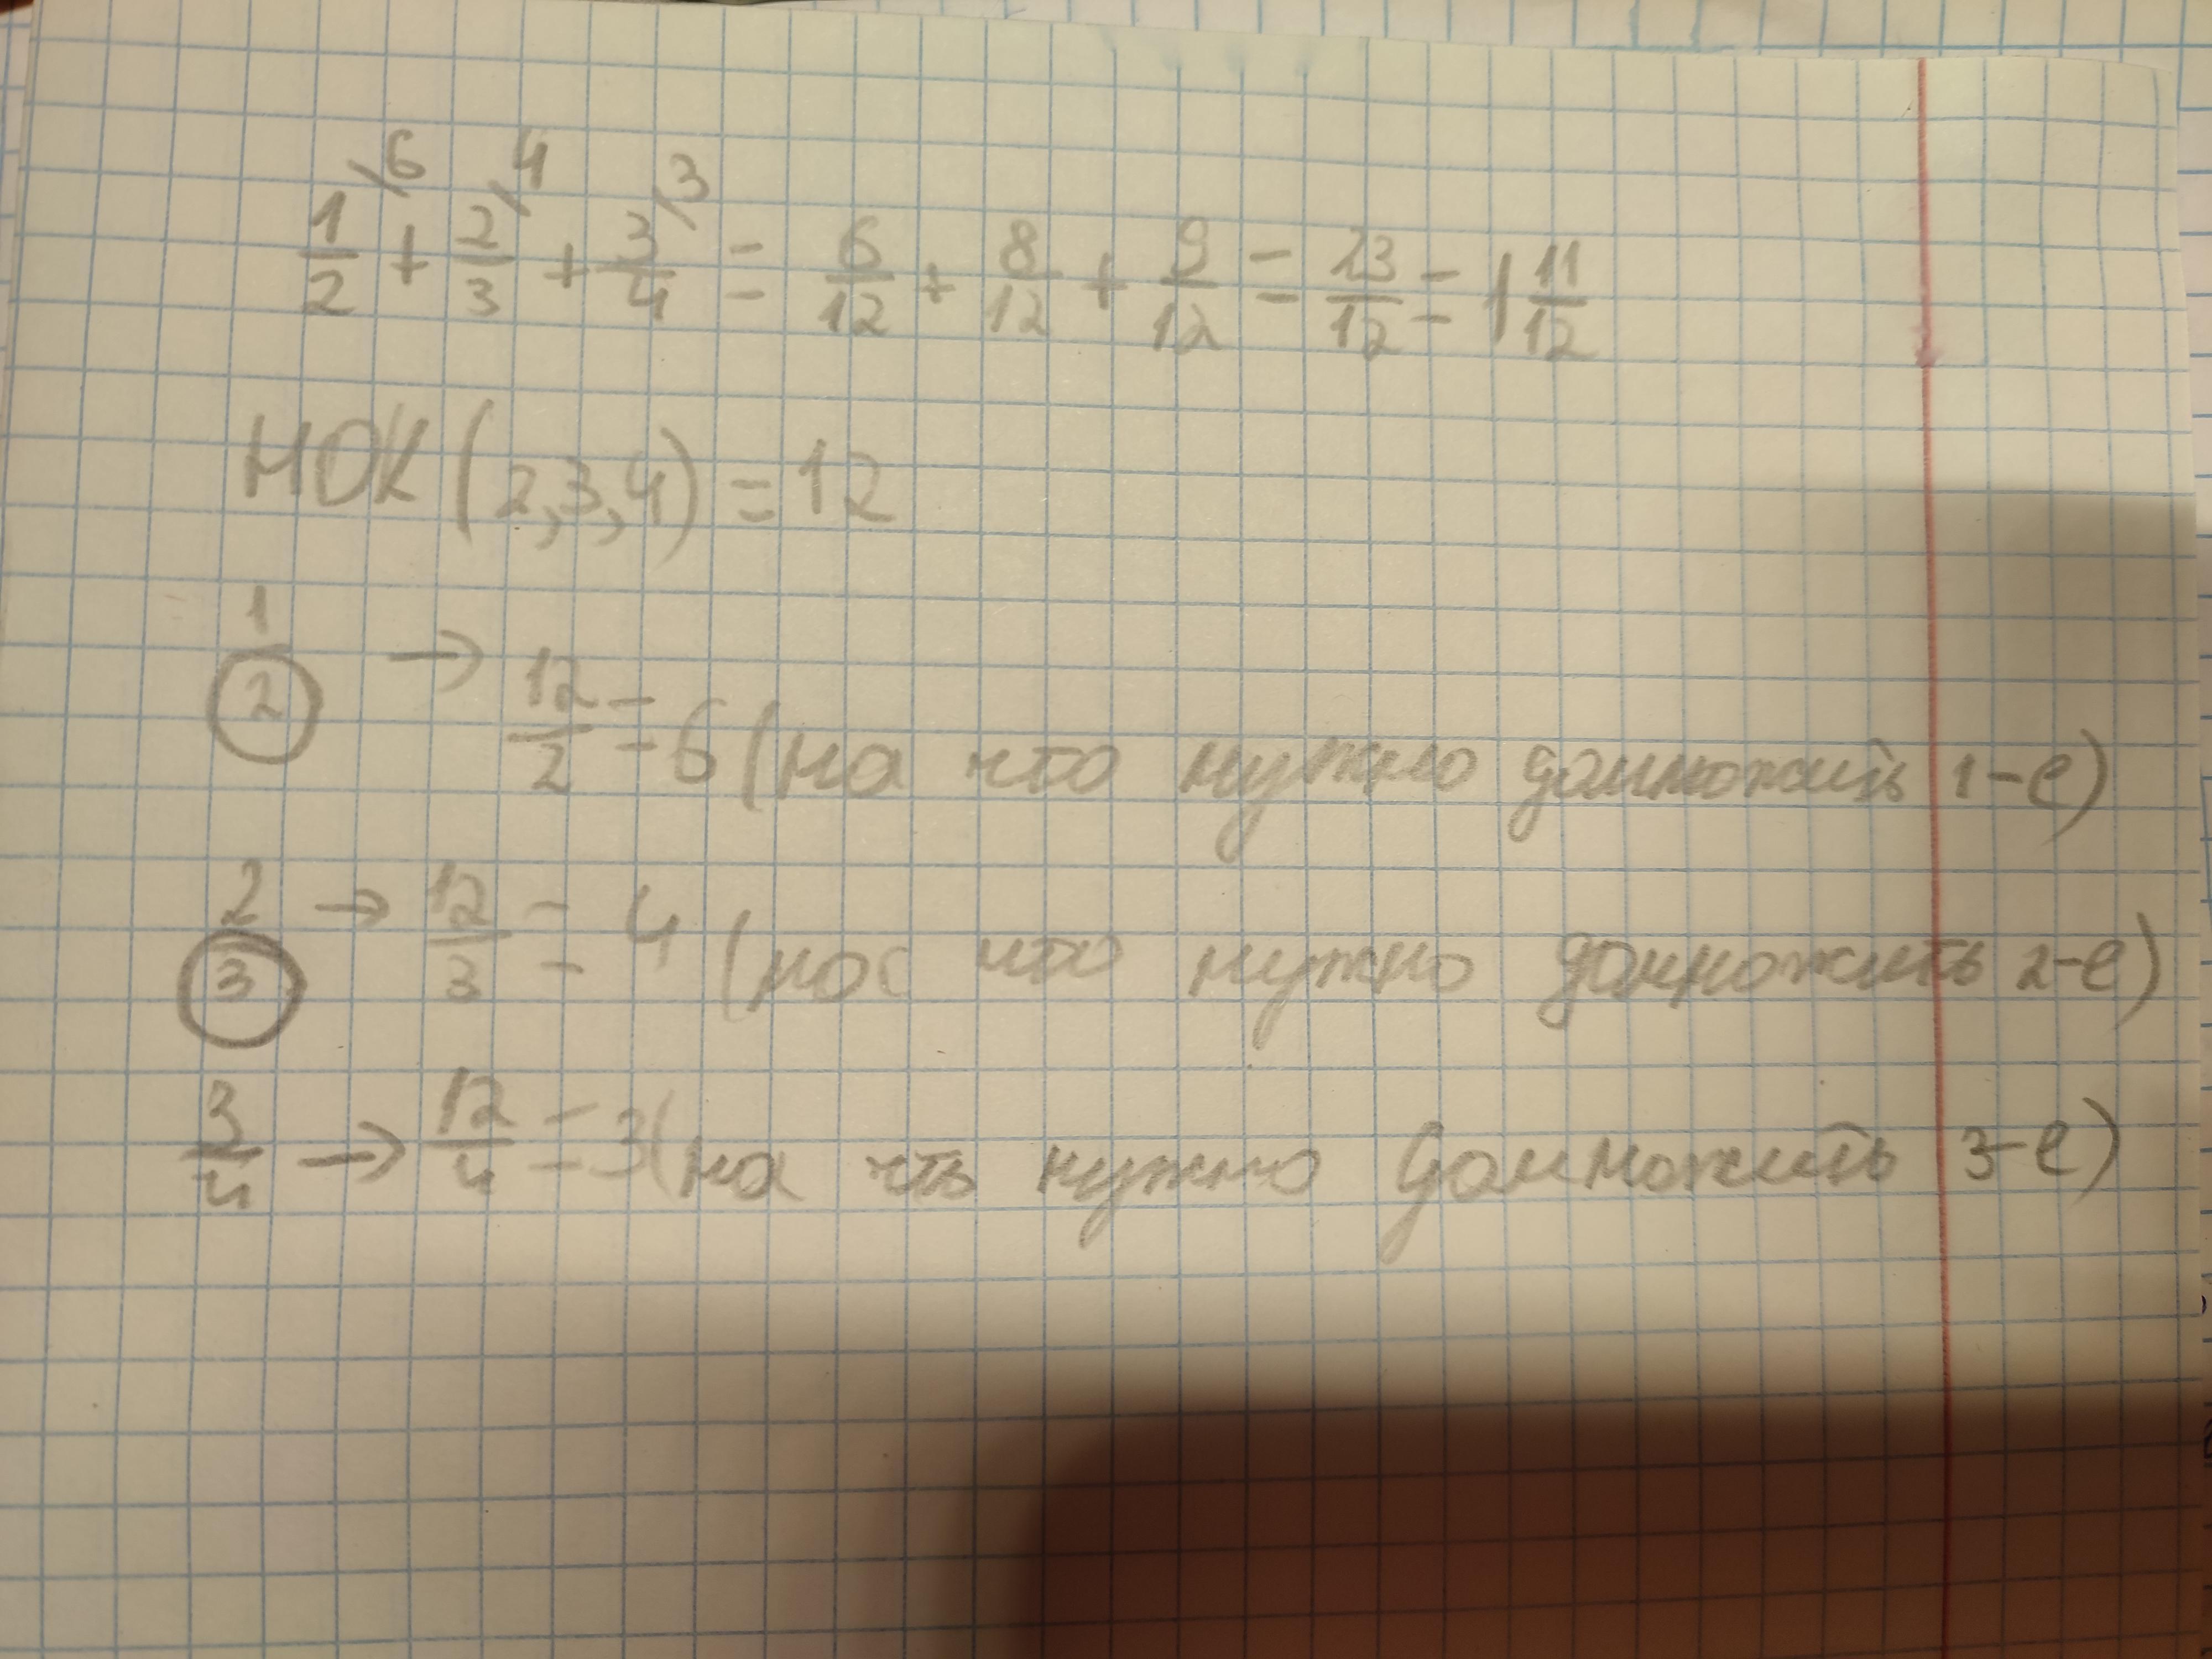 1/2 \6 + 2/3 \4 + 3/4 \3 = 6/12 + 8/12 + 9/12 = 23/12 = 1 11/12
НОК (2,3,4) = 12
1/2 → 12/2 = 6 (на что нужно домножить 1-е)
2/3 → 12/3 = 4 (на что нужно домножить 2-е)
3/4 → 12/4 = 3 (на что нужно домножить 3-е)